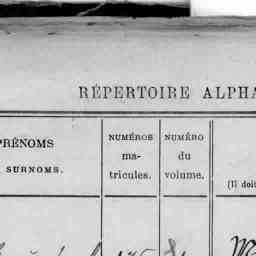 RÉPERTOIRE ALPHA
PRÉNOMS
SURNOMS.
NUMÉROS
ma-
tricules.
NUMÉRO
du
volume.
(Il doit